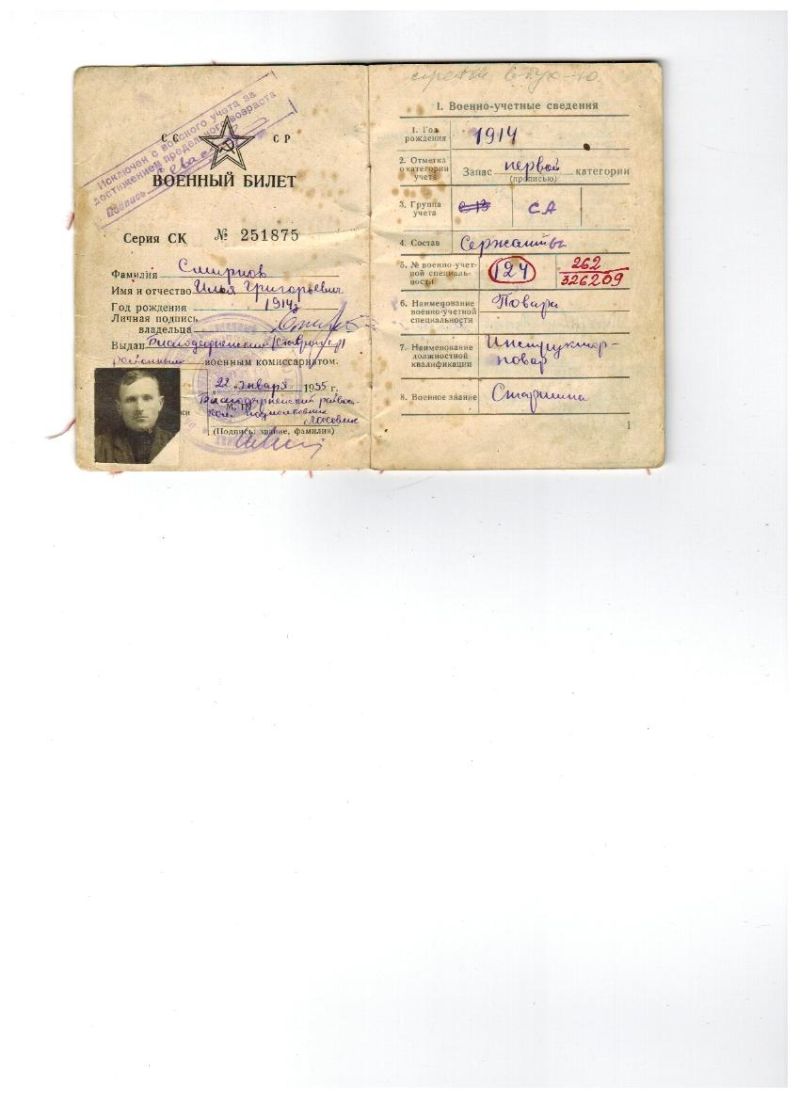 Исключен с воинского учета за
достижением предельного возраста
Подпись
СС СР
ВОЕННЫЙ БИЛЕТ
Серия СК № 251875
Фамилия Смирнов
Имя и отчество Илья Григорьевич
Год рождения 1914 г.
Личная подпись
владельца
Выдан
районным военным комиссариатом.
22 января 1955 г.
М. П.
(Подпись, звание, фамилия)
I. Военно-учетные сведения
1. Год рождения 1914
2. Отметка о категории учета Запас первой категории
(прописью)
3. Группа учета СА
4. Состав Сержанты
5. № военно-учетной специальности 124 262
326209
6. Наименование военно-учетной специальности Повара
7. Наименование должностной квалификации Инструктор-повар
8. Военное звание Старшина
1